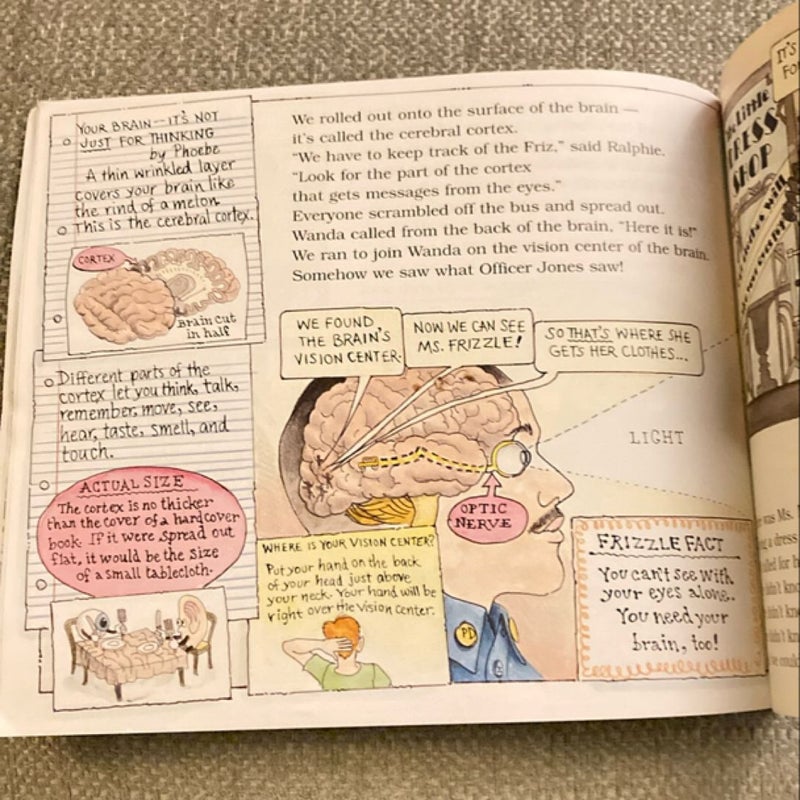 YOUR BRAIN—IT'S NOT
JUST FOR THINKING
by Phoebe
A thin wrinkled layer
covers your brain like
the rind of a melon.
This is the cerebral cortex.
CORTEX
Brain cut
in half
Different parts of the
cortex let you think, talk,
remember, move, see,
hear, taste, smell, and
touch.
ACTUAL SIZE
The cortex is no thicker
than the cover of a hardcover
book. If it were spread out
flat, it would be the size
of a small tablecloth.
We rolled out onto the surface of the brain —
it's called the cerebral cortex.
"We have to keep track of the Friz," said Ralphie.
"Look for the part of the cortex
that gets messages from the eyes."
Everyone scrambled off the bus and spread out.
Wanda called from the back of the brain, "Here it is!"
We ran to join Wanda on the vision center of the brain.
Somehow we saw what Officer Jones saw!
WE FOUND
THE BRAIN'S
VISION CENTER.
NOW WE CAN SEE
MS. FRIZZLE!
SO THAT'S WHERE SHE
GETS HER CLOTHES...
LIGHT
OPTIC
NERVE
PD
WHERE IS YOUR VISION CENTER?
Put your hand on the back
of your head just above
your neck. Your hand will be
right over the vision center.
FRIZZLE FACT
You can't see with
your eyes alone.
You need your
brain, too!
IT'S
FO
Little
RESS
SHOP
was Ms.
a dress